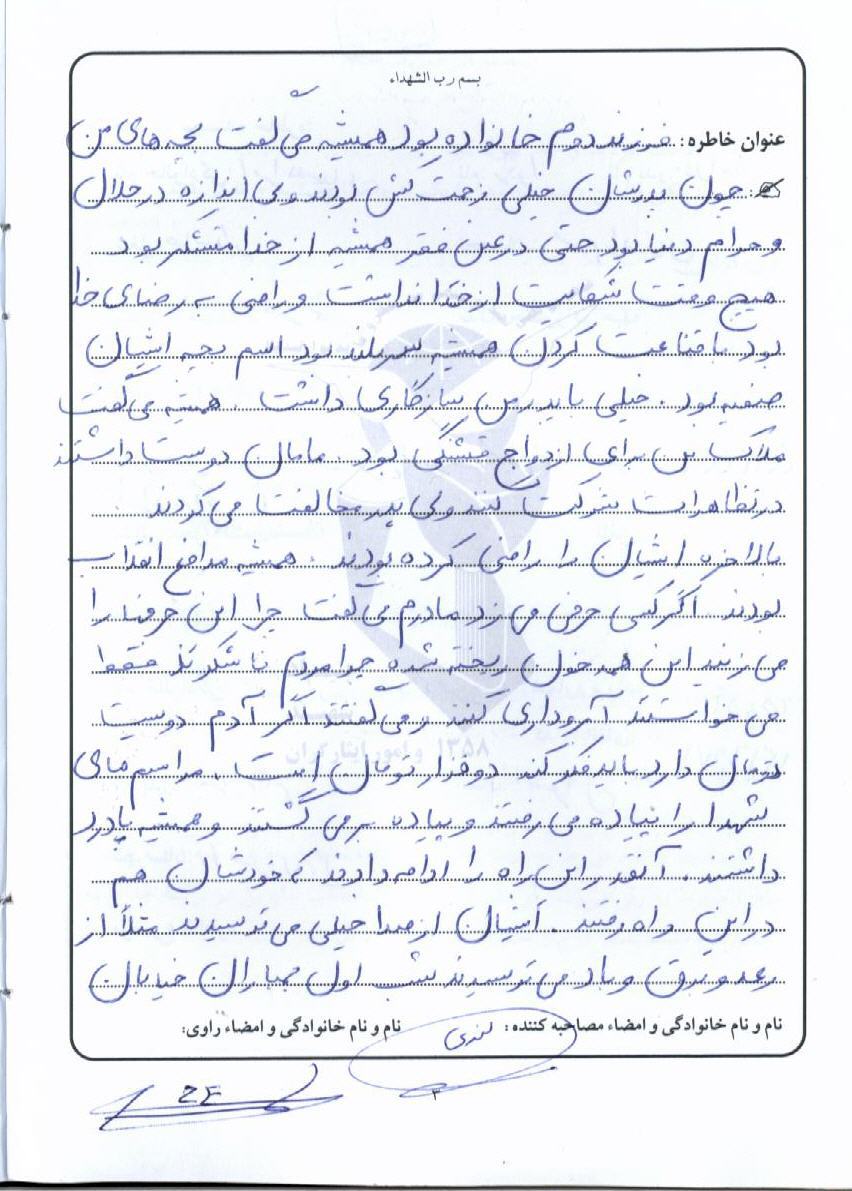 بسم رب الشهداء
عنوان خاطره: فرزند دوم خانواده بود همیشه می گفت بچه های من
چون پدرشان خیلی زحمت کش بودند ولی اندازه در حلال
و حرام دنیا بود حتی در عین فقر همیشه از خدا متشکر بود
هیچ وقت شکایت از خدا نداشت و راضی به رضای خدا
بود با قناعت کردن همیشه سربلند بود اسم بچه ایشان
صفیه بود. خیلی با پدر من سازگاری داشت. همیشه می گفت
ملاک من برای ازدواج قشنگی بود. مامان دوست داشتند
در تظاهرات شرکت کنند ولی پدر مخالفت می کردند
بالاخره ایشان را راضی کرده بودند. همیشه مدافع انقلاب
بودند اگر کسی حرفی می زد مادرم می گفت چرا این حرفها را
می زنید این همه خون ریخته شده چرا مردم ناشکرند فقط
می خواستند آبروداری کنند و می گفتند اگر آدم دویست
تومان دارد باید فکر کند دو هزار تومان است. مراسم های
شهدا را پیاده می رفتند و پیاده برمی گشتند و همیشه پادرد
داشتند. آنقدر این راه را ادامه دادند که خودشان هم
در این راه رفتند. ایشان از صدا خیلی می ترسیدند مثلاً از
رعد و برق و باد می ترسیدند شب اول بمباران خیابان
نام و نام خانوادگی و امضاء مصاحبه کننده: نام و نام خانوادگی و امضاء راوی:
۳
۲۴